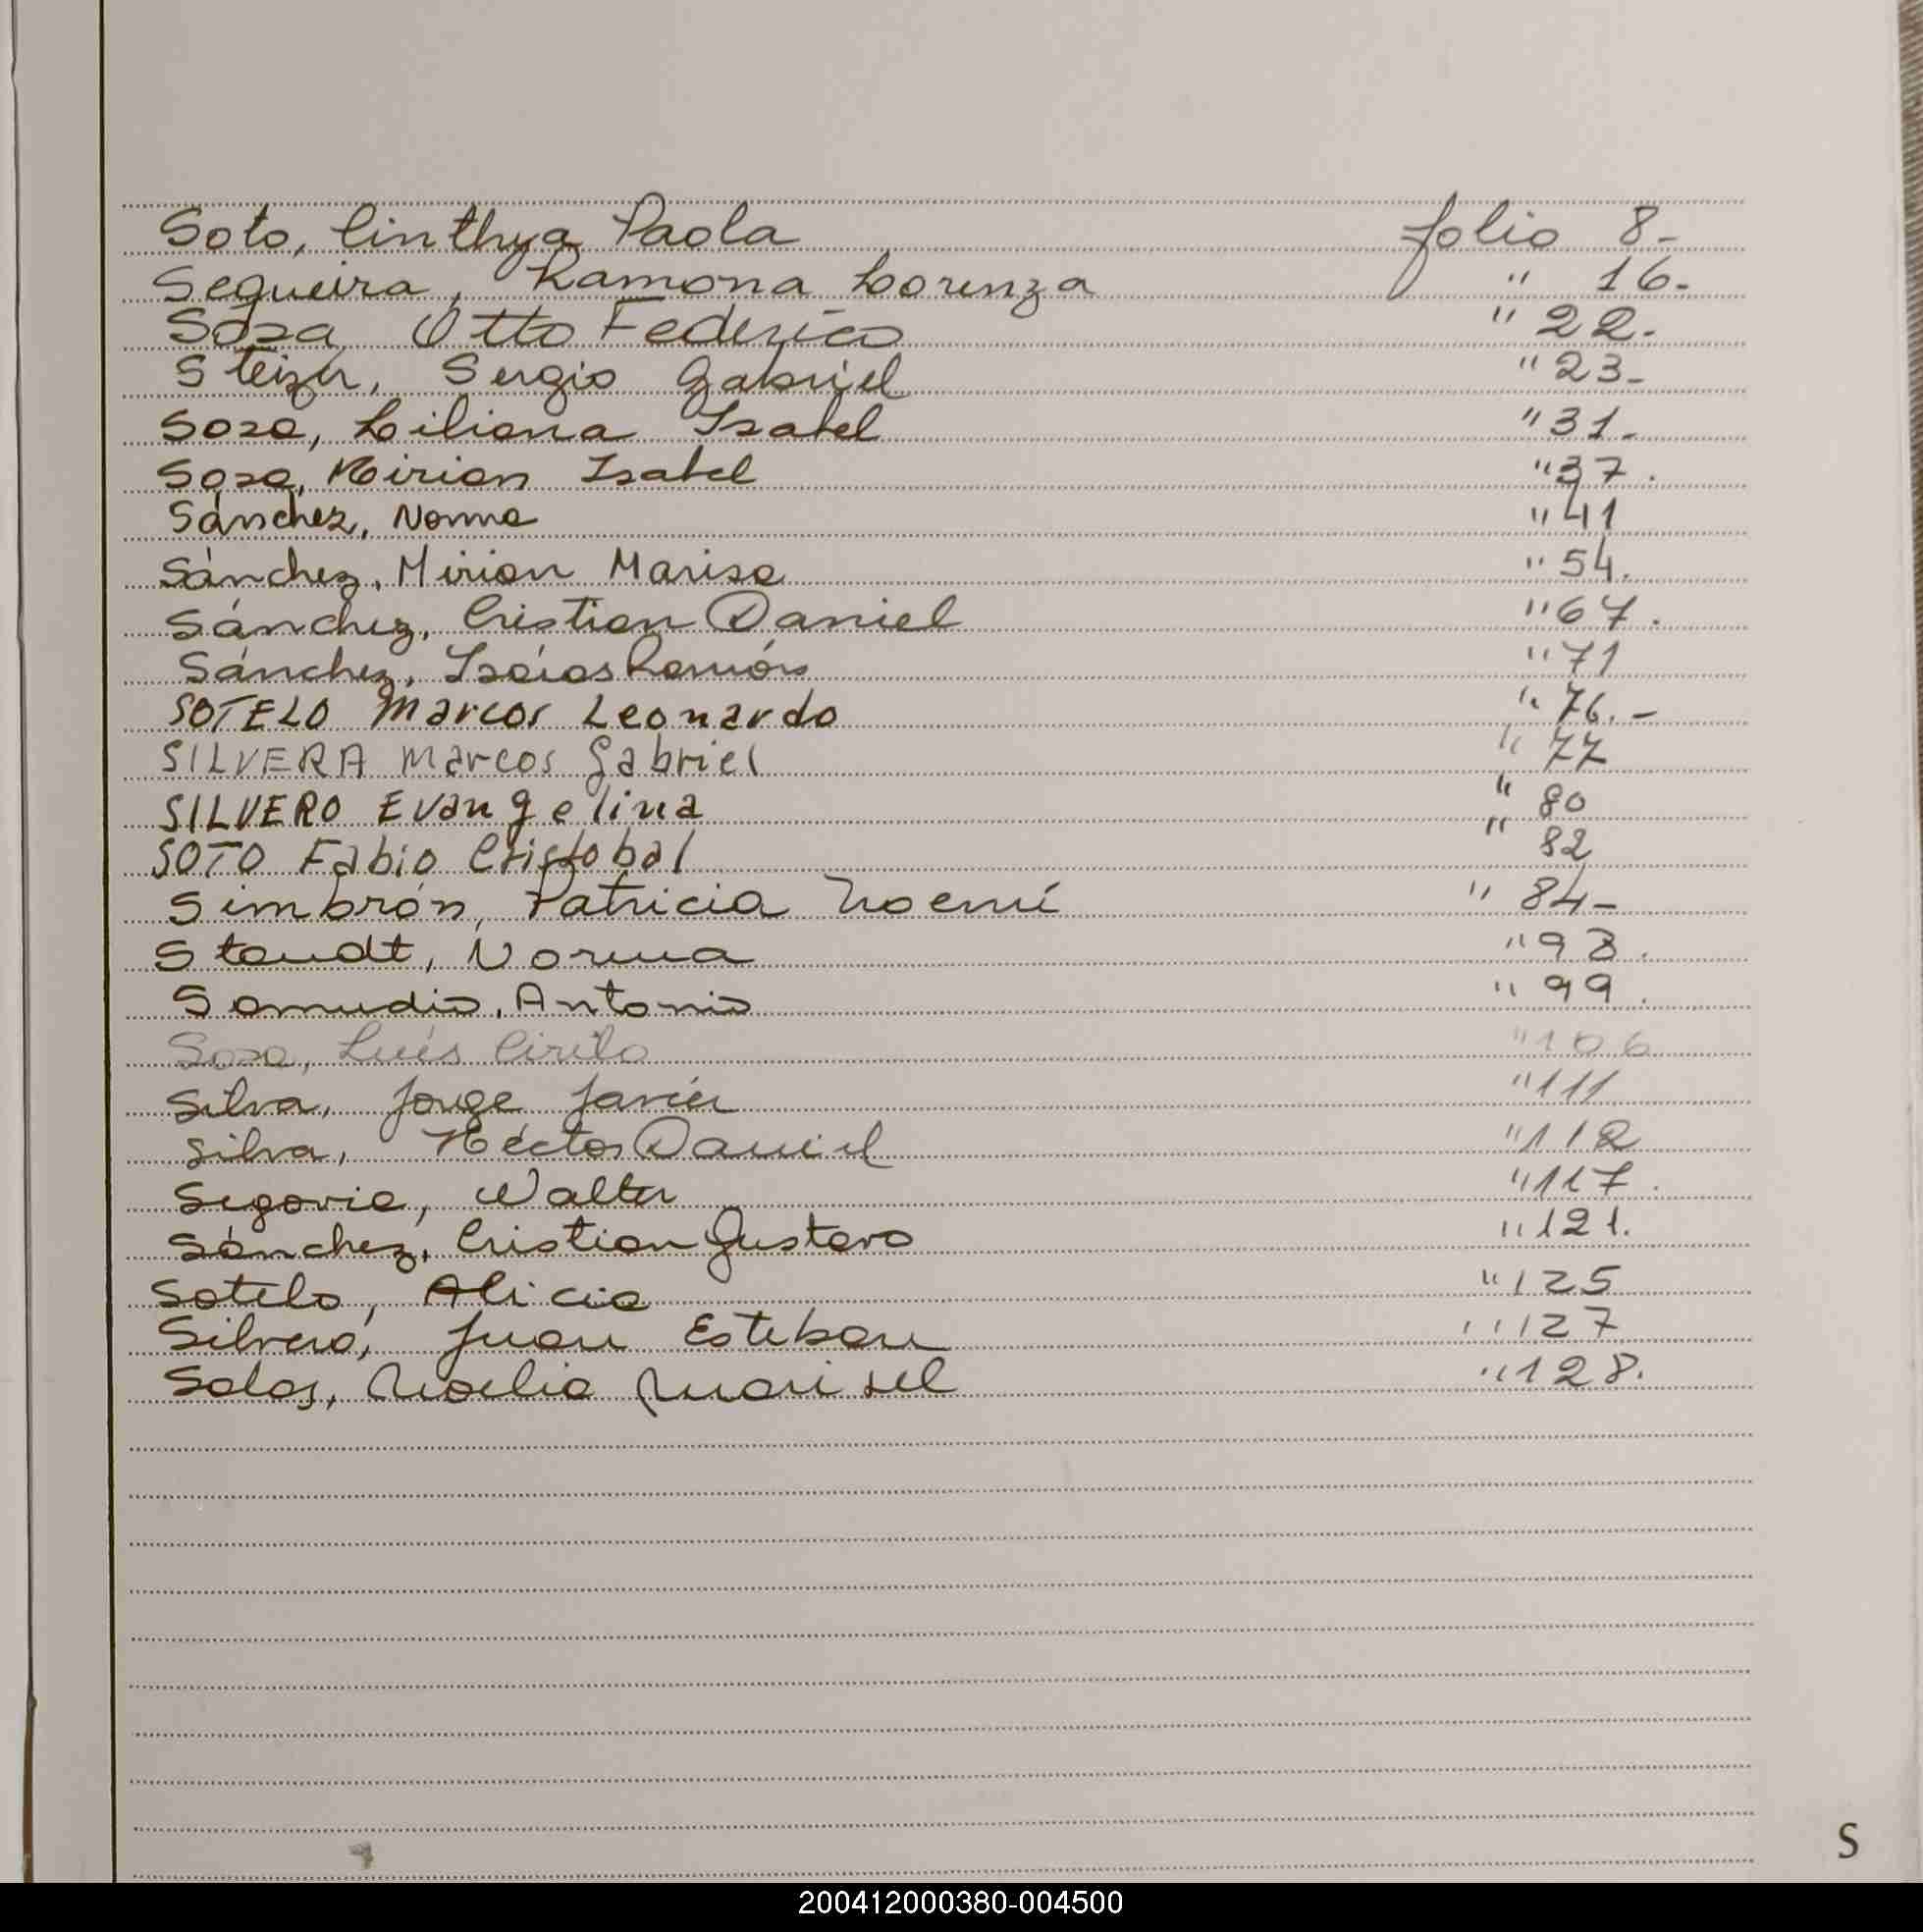 Soto, Cinthya Paola folio 8.-
Sequeira, Ramona Lorenza " 16.-
Sosa Otto Federico " 22.-
Steizer, Sergio Gabriel " 23-
Sosa, Liliana Isabel " 31.-
Sosa, Mirian Isabel " 37.
Sánchez, Norma " 41
Sánchez, Mirian Marisa " 54.
Sánchez, Cristian Daniel " 67.
Sánchez, Isaías Ramón " 71
SOTELO Marcos Leonardo " 76.-
SILVERA Marcos Gabriel " 77
SILVERO Evangelina " 80
SOTO Fabio Cristobal " 82
Simbrón, Patricia Noemí " 84-
Staudt, Norma " 98.
Samudio, Antonio " 99.
Sosa, Luís Cirilo " 106
Silva, Jorge Javier " 111
Silva, Héctor Daniel " 112
Segovia, Walter " 117.
Sánchez, Cristian Gustavo " 121.
Sotelo, Alicia " 125
Silvero, Juan Esteban " 127
Salas, Noelia Marisel " 128.
S
200412000380-004500